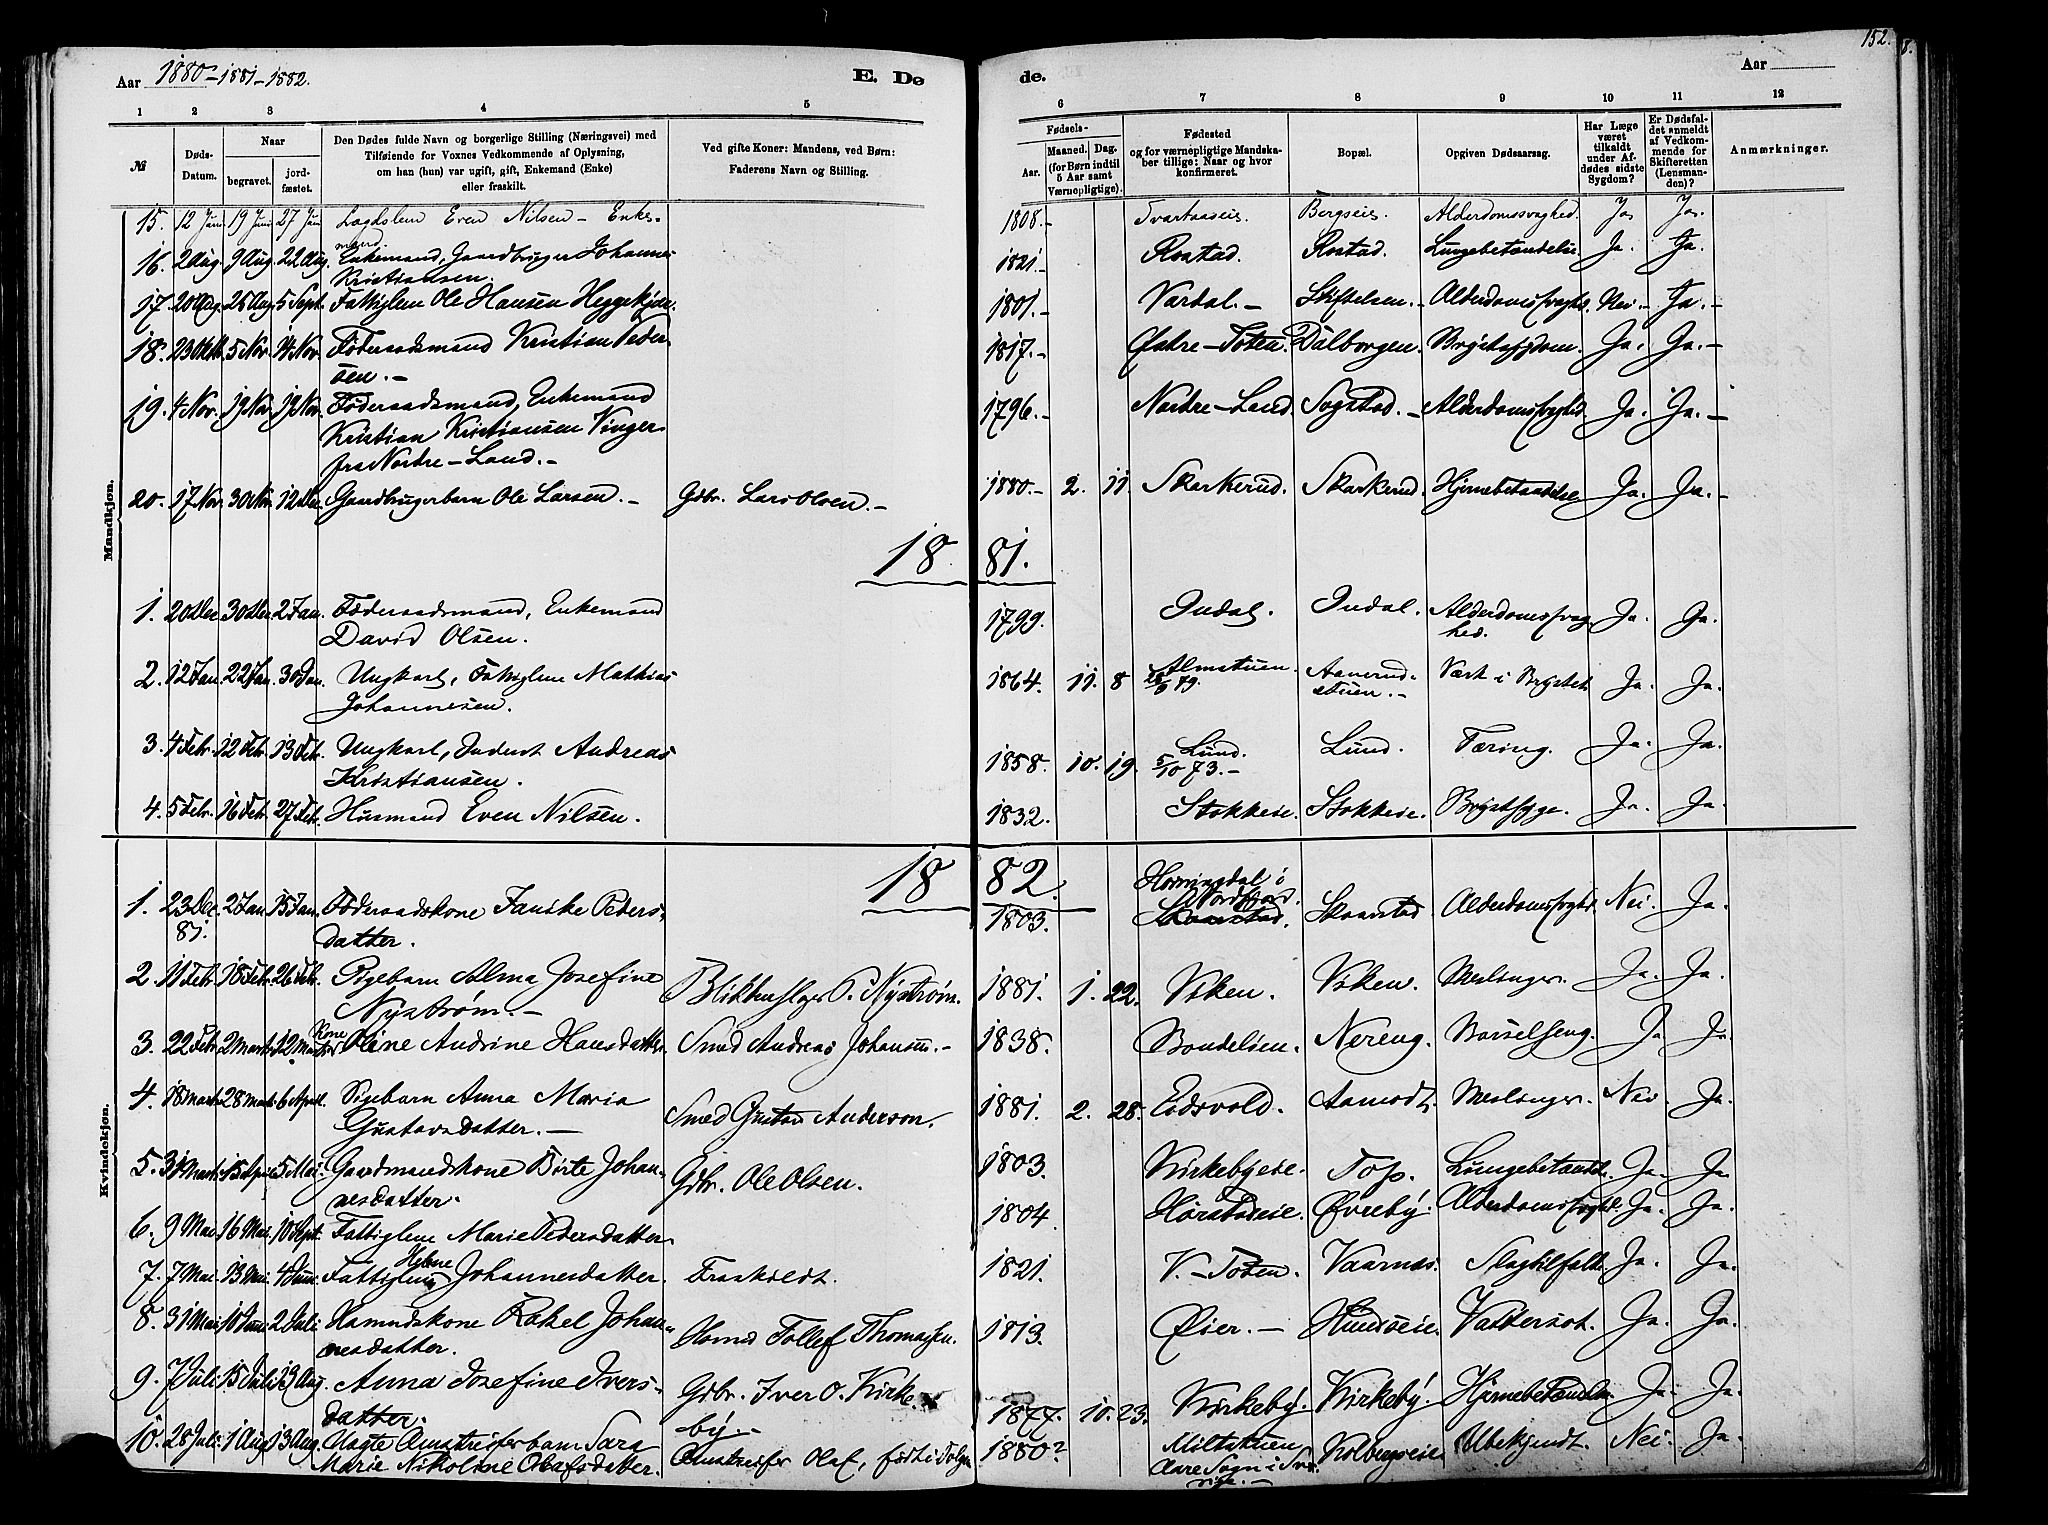 152.
8.
Aar 1880-1881-1882.
E. Dø
de.
Aar
1 2 3 4 5 6 7 8 9 10 11 12
№
Døds-
Datum.
Naar
begravet.
jord-
fæstet.
Den Dødes fulde Navn og borgerlige Stilling (Næringsvei) med
Tilføiende for Voxnes Vedkommende af Oplysning,
om han (hun) var ugift, gift, Enkemand (Enke)
eller fraskilt.
Ved gifte Koner: Mandens, ved Børn:
Faderens Navn og Stilling.
Fødsels-
Aar.
Maaned.
Dag.
(for Børn indtil
5 Aar samt
Værnepligtige).
Fødested
og for værnepligtige Mandska-
ber tillige: Naar og hvor
konfirmeret.
Bopæl.
Opgiven Dødsaarsag.
Har Læge
været
tilkaldt
under Af-
dødes sidste
Sygdom?
Er Dødsfal-
det anmeldt
af Vedkom-
mende for
Skifteretten
(Lensman-
den)?
Anmærkninger.
Mandkjøn.
15. 12 Juni 19 Juni 27 Jun Lagdslem Even Nilsen - Enke- 1808.- Bergseie. Alderdomssvaghed. Ja. Ja.
mand.
16. 2 Aug. 9 Aug. 22 Aug. Enkemand, Gaardbruger Johannes 1821.- Rostad. Rostad. Lungebetændelse. Ja. Ja.
Kristiansen.
17. 20 Aug. 26 Aug. 5 Sept. Fattiglem Ole Hansen 1801.- Vardal.- Stiftelsen.- Alderdomssvaghd. Nei.- Ja.-
18. 23 Oktb. 5 Nov. 14 Nov. Føderaadsmand Kristian Peder- 1817.- Østre-Toten. Dalborgen. Brystsygdom. Ja. Ja.-
sen.-
19. 4 Nov. 19 Nov. 19 Nov. Føderaadsmand, Enkemand 1796.- Nordre-Land. Sogstad.- Alderdomssvaghed. Ja. Ja.-
Kristian Kristiansen Vinger
fra Nordre-Land.-
20. 17 Nov. 30 Nov. 12 Dec. Gaardbrugerbarn Ole Larsen.- Gdbr. Lars Olsen.- 1880.- 2. 11. Skarkerud. Skarkerud. Hjernebetændelse Ja. Ja.-
1881.
1. 20 Dec 30 Dec 2 Jan. Føderaadsmand, Enkemand 1799. Indal. Indal. Alderdomssvag- Ja. Ja.
David Olsen. hed.
2. 12 Jan. 22 Jan. 30 Jan. Ungkarl, Fattiglem Mathias 1864. 11. 8 Almstuen. Aanerud- Vært i Brystet Ja. Ja.
Johannesen. 79. stuen.-
3. 4 Febr. 12 Febr. 13 Febr. Ungkarl, Inderst Andreas 1858. 10. 19. Lund. Lund. Tæring. Ja. Ja.
Kristiansen. 5/10 73.-
4. 5 Febr. 16 Febr. 27 Febr. Husmand Even Nilsen. 1832. Stokkeie. Stokkeie. Brystsyge. Ja. Ja.
Kvindekjøn.
1882.
Horningdal i
Nordfjord.
1. 23 Dec. 2 Jan. 15 Jan. Føderaadskone Janike Peders- 1803. Skaarstad. Skaarstad Alderdomssvaghd. Nei. Ja.
81. datter.
2. 11 Febr. 18 Febr. 26 Febr. Pigebarn Alma Josefine Blikkenslager P. Nystrøm. 1881. 1. 22. Viken. Viken. Meslinger. Ja. Ja.
Nystrøm.-
3. 22 Febr. 2 Marts 12 Marts Kone Oline Andrine Hansdatter. Smed Andreas Johansen.- 1838. Bondelien. Nereng. Barselseng. Ja Ja.
4. 18 Marts 28 Marts 6 April. Pigebarn Anna Maria Smed Gustav Anderson. 1881. 2. 28. Eidsvold. Aamodt. Meslinger. Nei. Ja.
Gustavsdatter.-
5. 31 Marts 15 April 5 Mai. Gaardmandskone Birte Johan- Gdbr. Ole Olsen. 1803. Kirkebyeie. Top. Lungebetændt. Ja. Ja
nesdatter.
6. 9 Mai 16 Mai. 10 Sept. Fattiglem Marie Pedersdatter. 1804. Øvreby. Alderdomssvaghd. Ja. Ja.
7. 7 Mai. 13 Mai 4 Juni. Fattiglem Helene Johannesdatter. Fraskildt. 1821. V.-Toten. Vaarnæs. Slagtilfælde Ja. Ja.
8. 31 Mai 10 Juni 2 Juli Husmdskone Rakel Johan- Husmd Tollef Thomassen. 1813. Øier.- Hundseie. Vattersot. Ja. Ja.
nesdatter.
9. 7 Juli 15 Juli 13 Aug. Anna Josefine Ivers- Gdbr. Iver O. Kirke- 1877. 10. 23. Kirkeby. Kirkeby. Hjernebetændelse Ja. Ja.
datter. by.-
10. 28 Juli. 1 Aug. 13 Aug. Uægte barn Sara Olaf, født i 1880? Miltstuen Kolbergseie Ubekjendt. Nei. Ja.
Marie Nikoline Olafsdatter. Sogn i